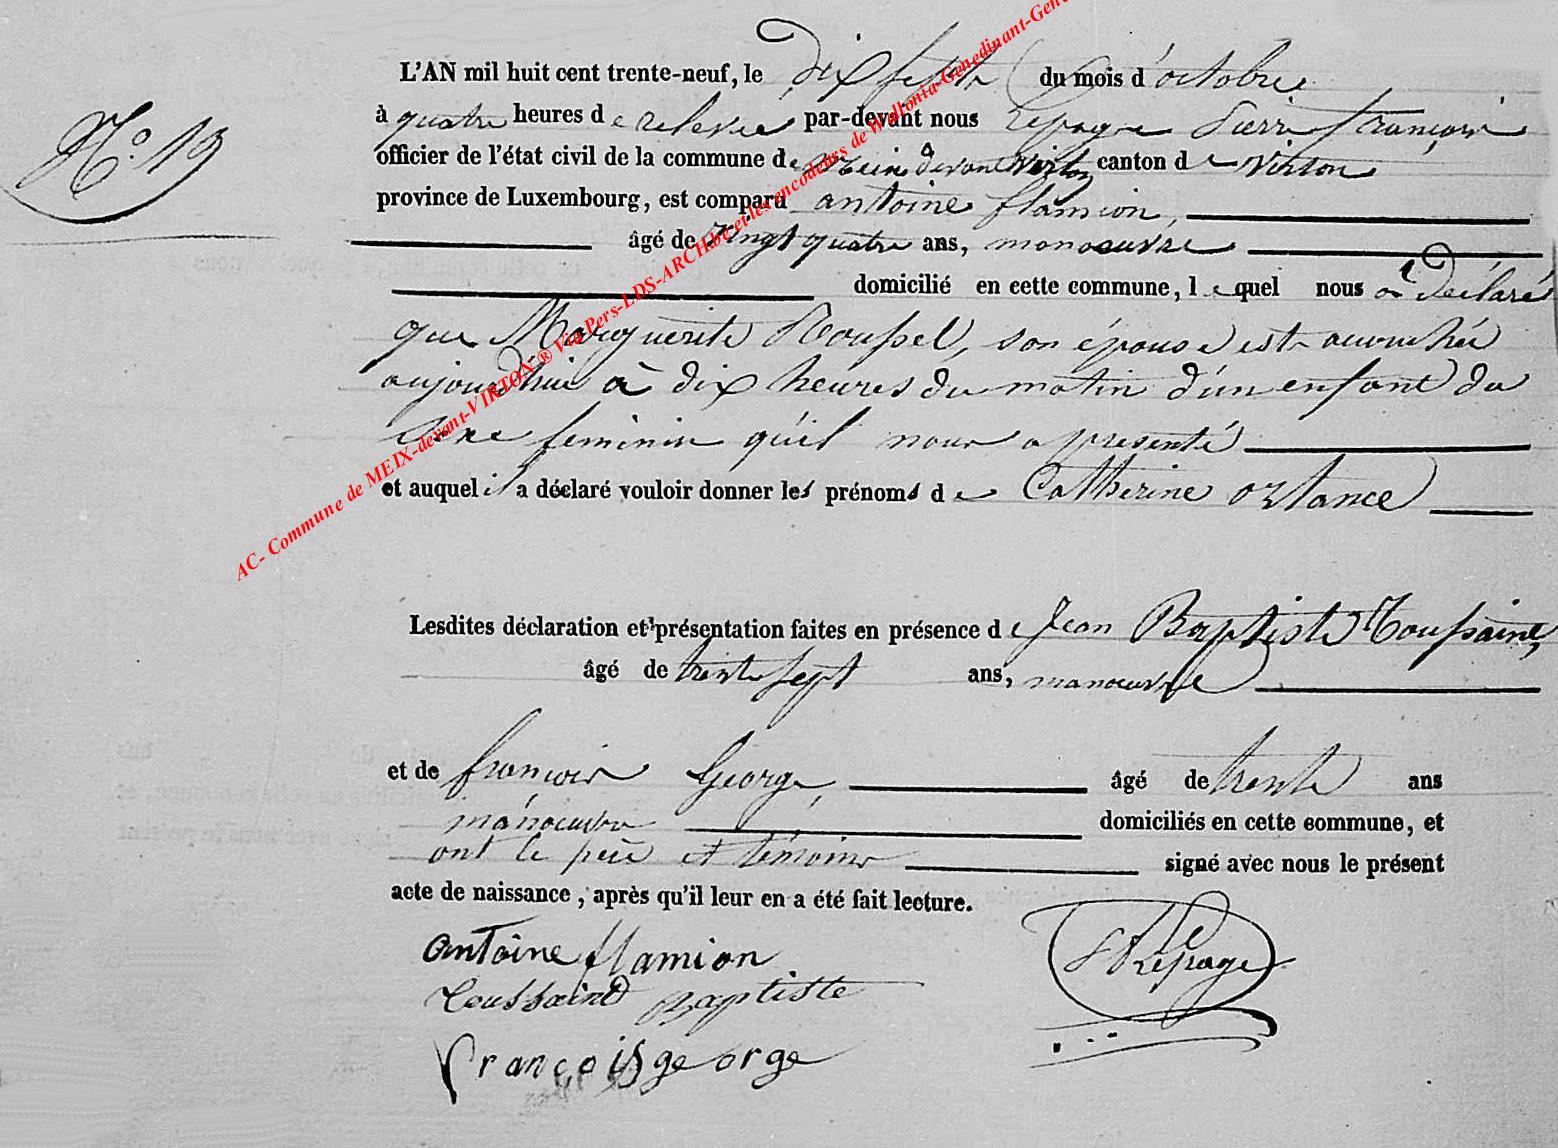 L'AN mil huit cent trente-neuf, le Dix sept du mois d'octobre
N.° 19
à quatre heures de relevée par-devant nous Lepage Pierre François
officier de l'état civil de la commune de Meix devant virton canton de virton
province de Luxembourg, est comparu antoine flamion,
âgé de vingt quatre ans, manoeuvre
domicilié en cette commune, lequel nous a Déclaré
que Marguerite Roussel, son épouse est accouchée
aujourdhui à dix heures du matin d'un enfant du
sexe feminin qu'il nous a presenté
et auquel il a déclaré vouloir donner les prénoms de Catherine ortance
Lesdites déclaration et présentation faites en présence de Jean Baptiste Toussaint,
âgé de trente sept ans, manoeuvre
et de françois George, âgé de trente ans
manoeuvre domiciliés en cette commune, et
ont le père et témoins signé avec nous le présent
acte de naissance, après qu'il leur en a été fait lecture.
antoine flamion
Toussaint Baptiste
françois george
Lepage
AC- Commune de MEIX-devant-VIRTON® Via Pers-LDS-ARCH.be et les encodeurs de Wallonia-Genedinant-Gene